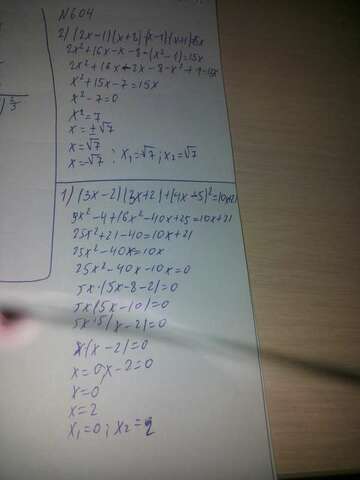 N604
2) (2x-1)(x+8)-(x-1)(x+1)=15x
2x²+16x-x-8-(x²-1)=15x
x²+15x-7=15x
x²-7=0
x²=7
x=±√7
x=√7
x=-√7 ; x₁=√7; x₂=√7
1) (3x-2)(3x+2)+(4x-5)²=10x+21
9x²-4+16x²-40x+25=10x+21
25x²+21-40=10x+21
25x²-40x=10x
25x²-40x-10x=0
5x·(5x-8-2)=0
5x(5x-10)=0
5x·5(x-2)=0
x(x-2)=0
x=0 x-2=0
x=0
x=2
x₁=0; x₂=2